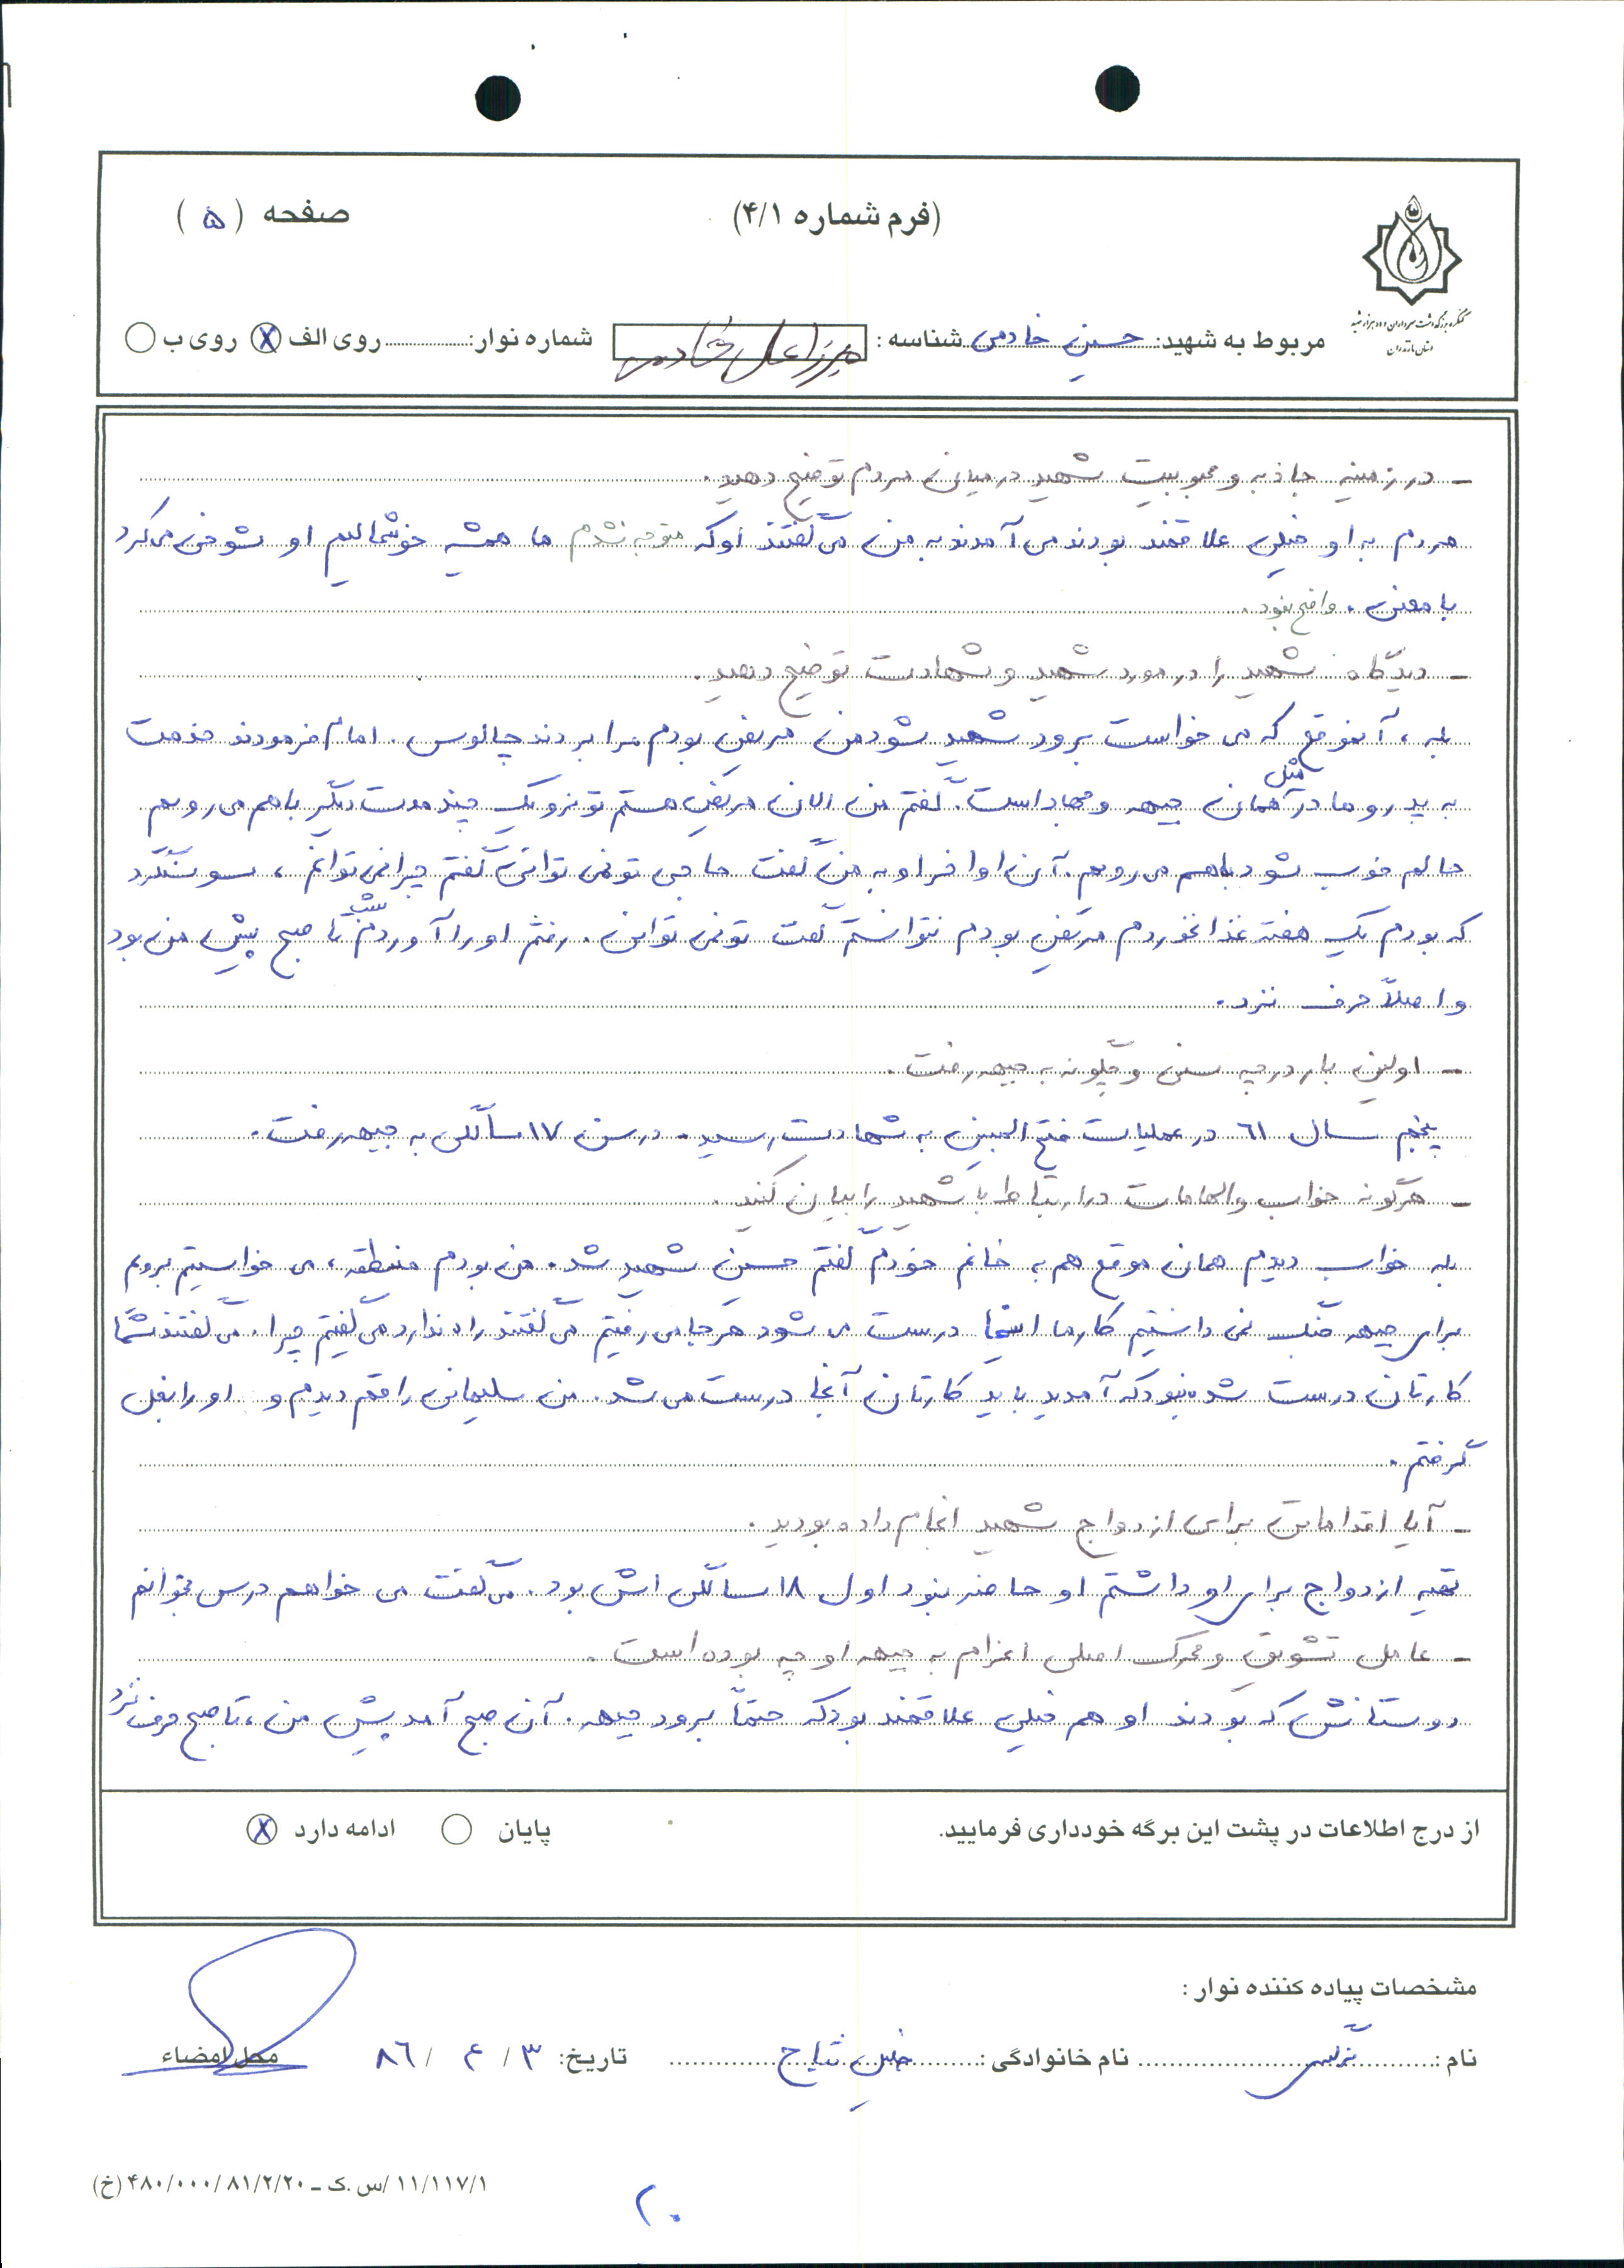 صفحه (۵)
(فرم شماره ۴/۱)
کنگره بزرگداشت سرداران و ده هزار شهید
استان مازندران
مربوط به شهید: حسین خادمی شناسه: میرزا علی خادمی شماره نوار: روی الف X روی ب
- در زمینه جاذبه و محبوبیت شهید در میان مردم توضیح دهید.
مردم به او خیلی علاقمند بودند می آمدند به من می گفتند او که متوجه نشدم ما همیشه خوشحالیم او شوخی می کرد
با معنی. واضح نبود.
- دیدگاه شهید را در مورد شهید و شهادت توضیح دهید.
بله، آنموقع که می خواست برود شهید شود من مریض بودم مرا بردند چالوس. امام فرمودند خدمت
به پدر و مادر مثل همان جبهه و جهاد است. گفتم من الان مریض هستم تو نرو یک چند مدت دیگر باهم می رویم
حالم خوب شود باهم می رویم. آن اواخر او به من گفت حاجی تو نمی توانی گفتم چرا نمی توانم،
که بودم یک هفته غذا نخوردم مریض بودم نتوانستم گفت تو نمی توانی. رفتم او را آوردم شب تا صبح پیش من بود
و اصلاً حرف نزد.
- اولین بار در چه سنی و چگونه به جبهه رفت.
پنجم سال ٦١ در عملیات فتح المبین به شهادت رسید. در سن ۱۷ سالگی به جبهه رفت.
- هرگونه خواب و الهامات در ارتباط با شهید را بیان کنید.
بله خواب دیدم همان موقع هم به خانم خودم گفتم حسین شهید شد. من بودم منطقه، می خواستیم برویم
برای جبهه جنگ نمی دانستیم کار ما اینجا درست می شود هر جا می رفتیم می گفتند راه ندارد می گفتیم چرا. می گفتند شما
کارتان درست شده نبود که آمدید باید کارتان آنجا درست می شد. من سلیمانی را هم دیدم و او را بغل
گرفتم.
- آیا اقداماتی برای ازدواج شهید انجام داده بودید.
تهیه ازدواج برای او داشتم او حاضر نبود اول ۱۸ سالگی اش بود. می گفت می خواهم درس بخوانم
- عامل تشویق و محرک اصلی اعزام به جبهه او چه بوده است.
دوستانش که بودند او هم خیلی علاقمند بود که حتماً برود جبهه. آن صبح آمد پیش من، تا صبح حرف نزد
از درج اطلاعات در پشت این برگه خودداری فرمایید. پایان ادامه دارد X
مشخصات پیاده کننده نوار:
نام: نرگس نام خانوادگی: تاریخ: ۳ / ۴ / ۸٦ محل امضاء
۱۱/۱۱۷/۱ /س.ک ـ ۴۸۰/۰۰۰/۸۱/۲/۲۰ (خ)
۲۰